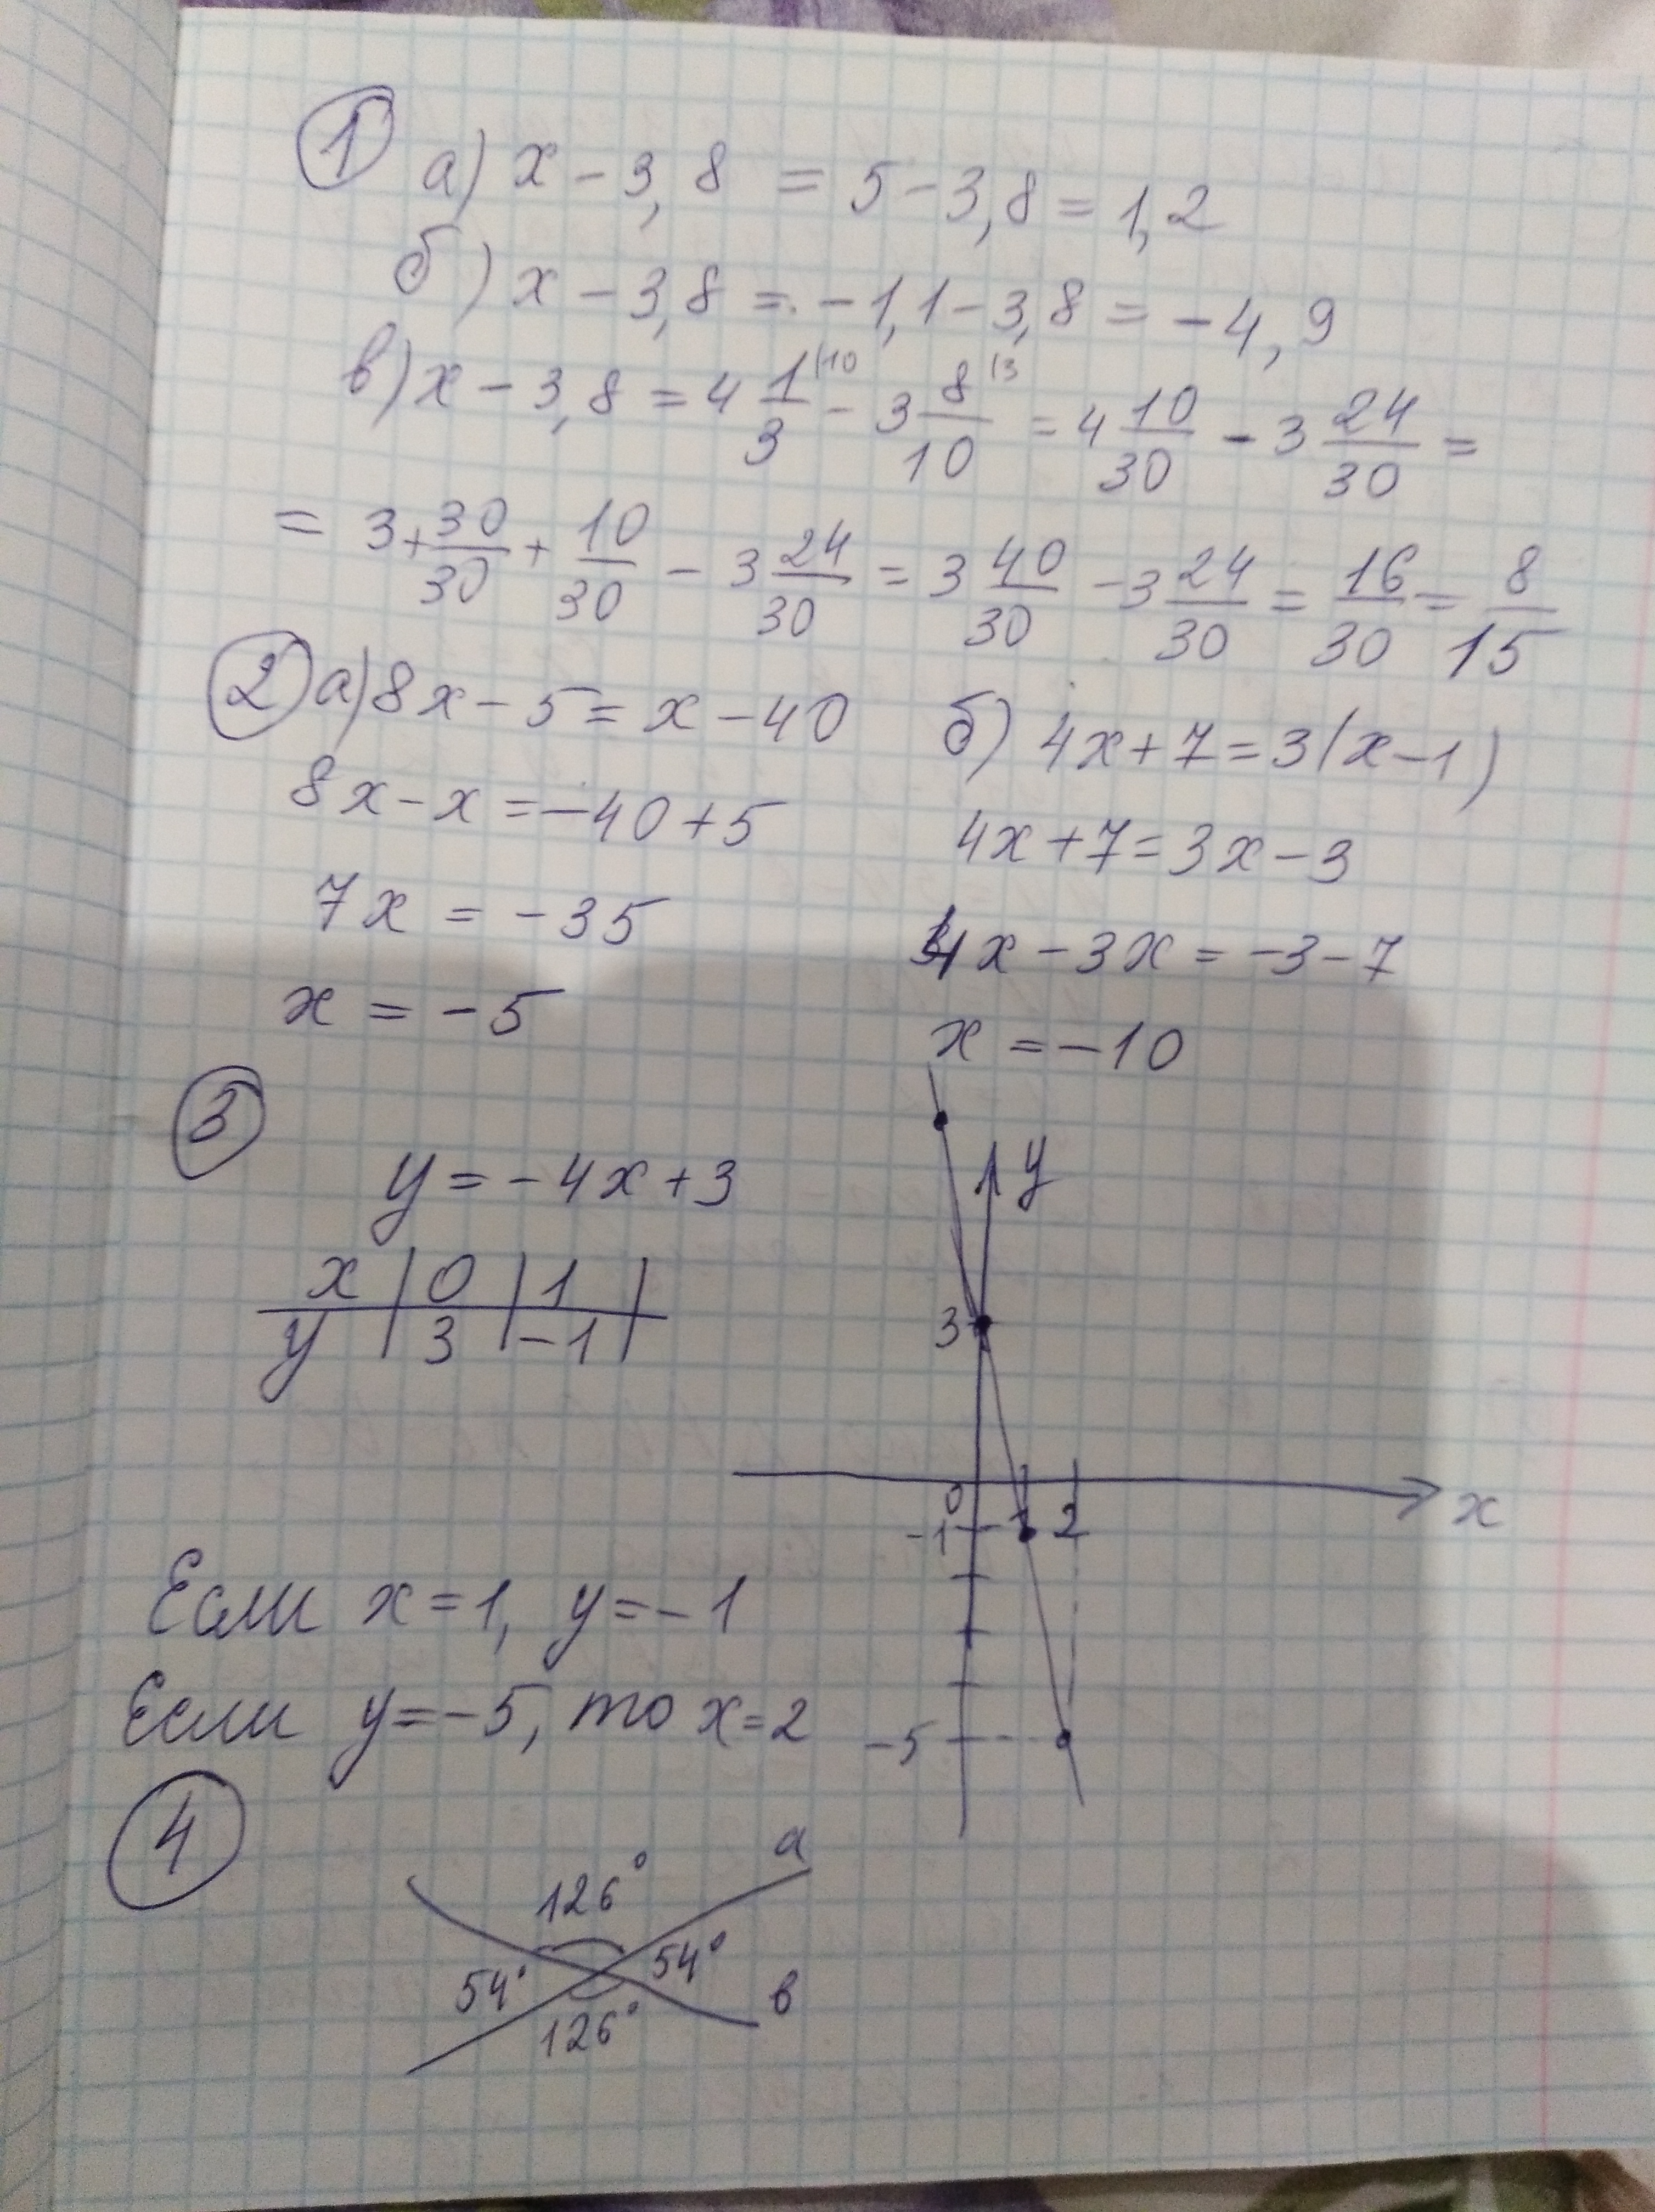 1 а) x - 3,8 = 5 - 3,8 = 1,2
б) x - 3,8 = -1,1 - 3,8 = -4,9
в) x - 3,8 = 4 1/3 (10 - 3 8/10 (3 = 4 10/30 - 3 24/30 =
= 3 + 30/30 + 10/30 - 3 24/30 = 3 40/30 - 3 24/30 = 16/30 = 8/15
2 а) 8x - 5 = x - 40
8x - x = -40 + 5
7x = -35
x = -5
б) 4x + 7 = 3(x - 1)
4x + 7 = 3x - 3
4x - 3x = -3 - 7
x = -10
3
y = -4x + 3
x | 0 | 1 |
y | 3 | -1 |
y
3
0
x
-1 1 2
-5
Если x = 1, y = -1
Если y = -5, то x = 2
4
126° a
54° 54°
126° в